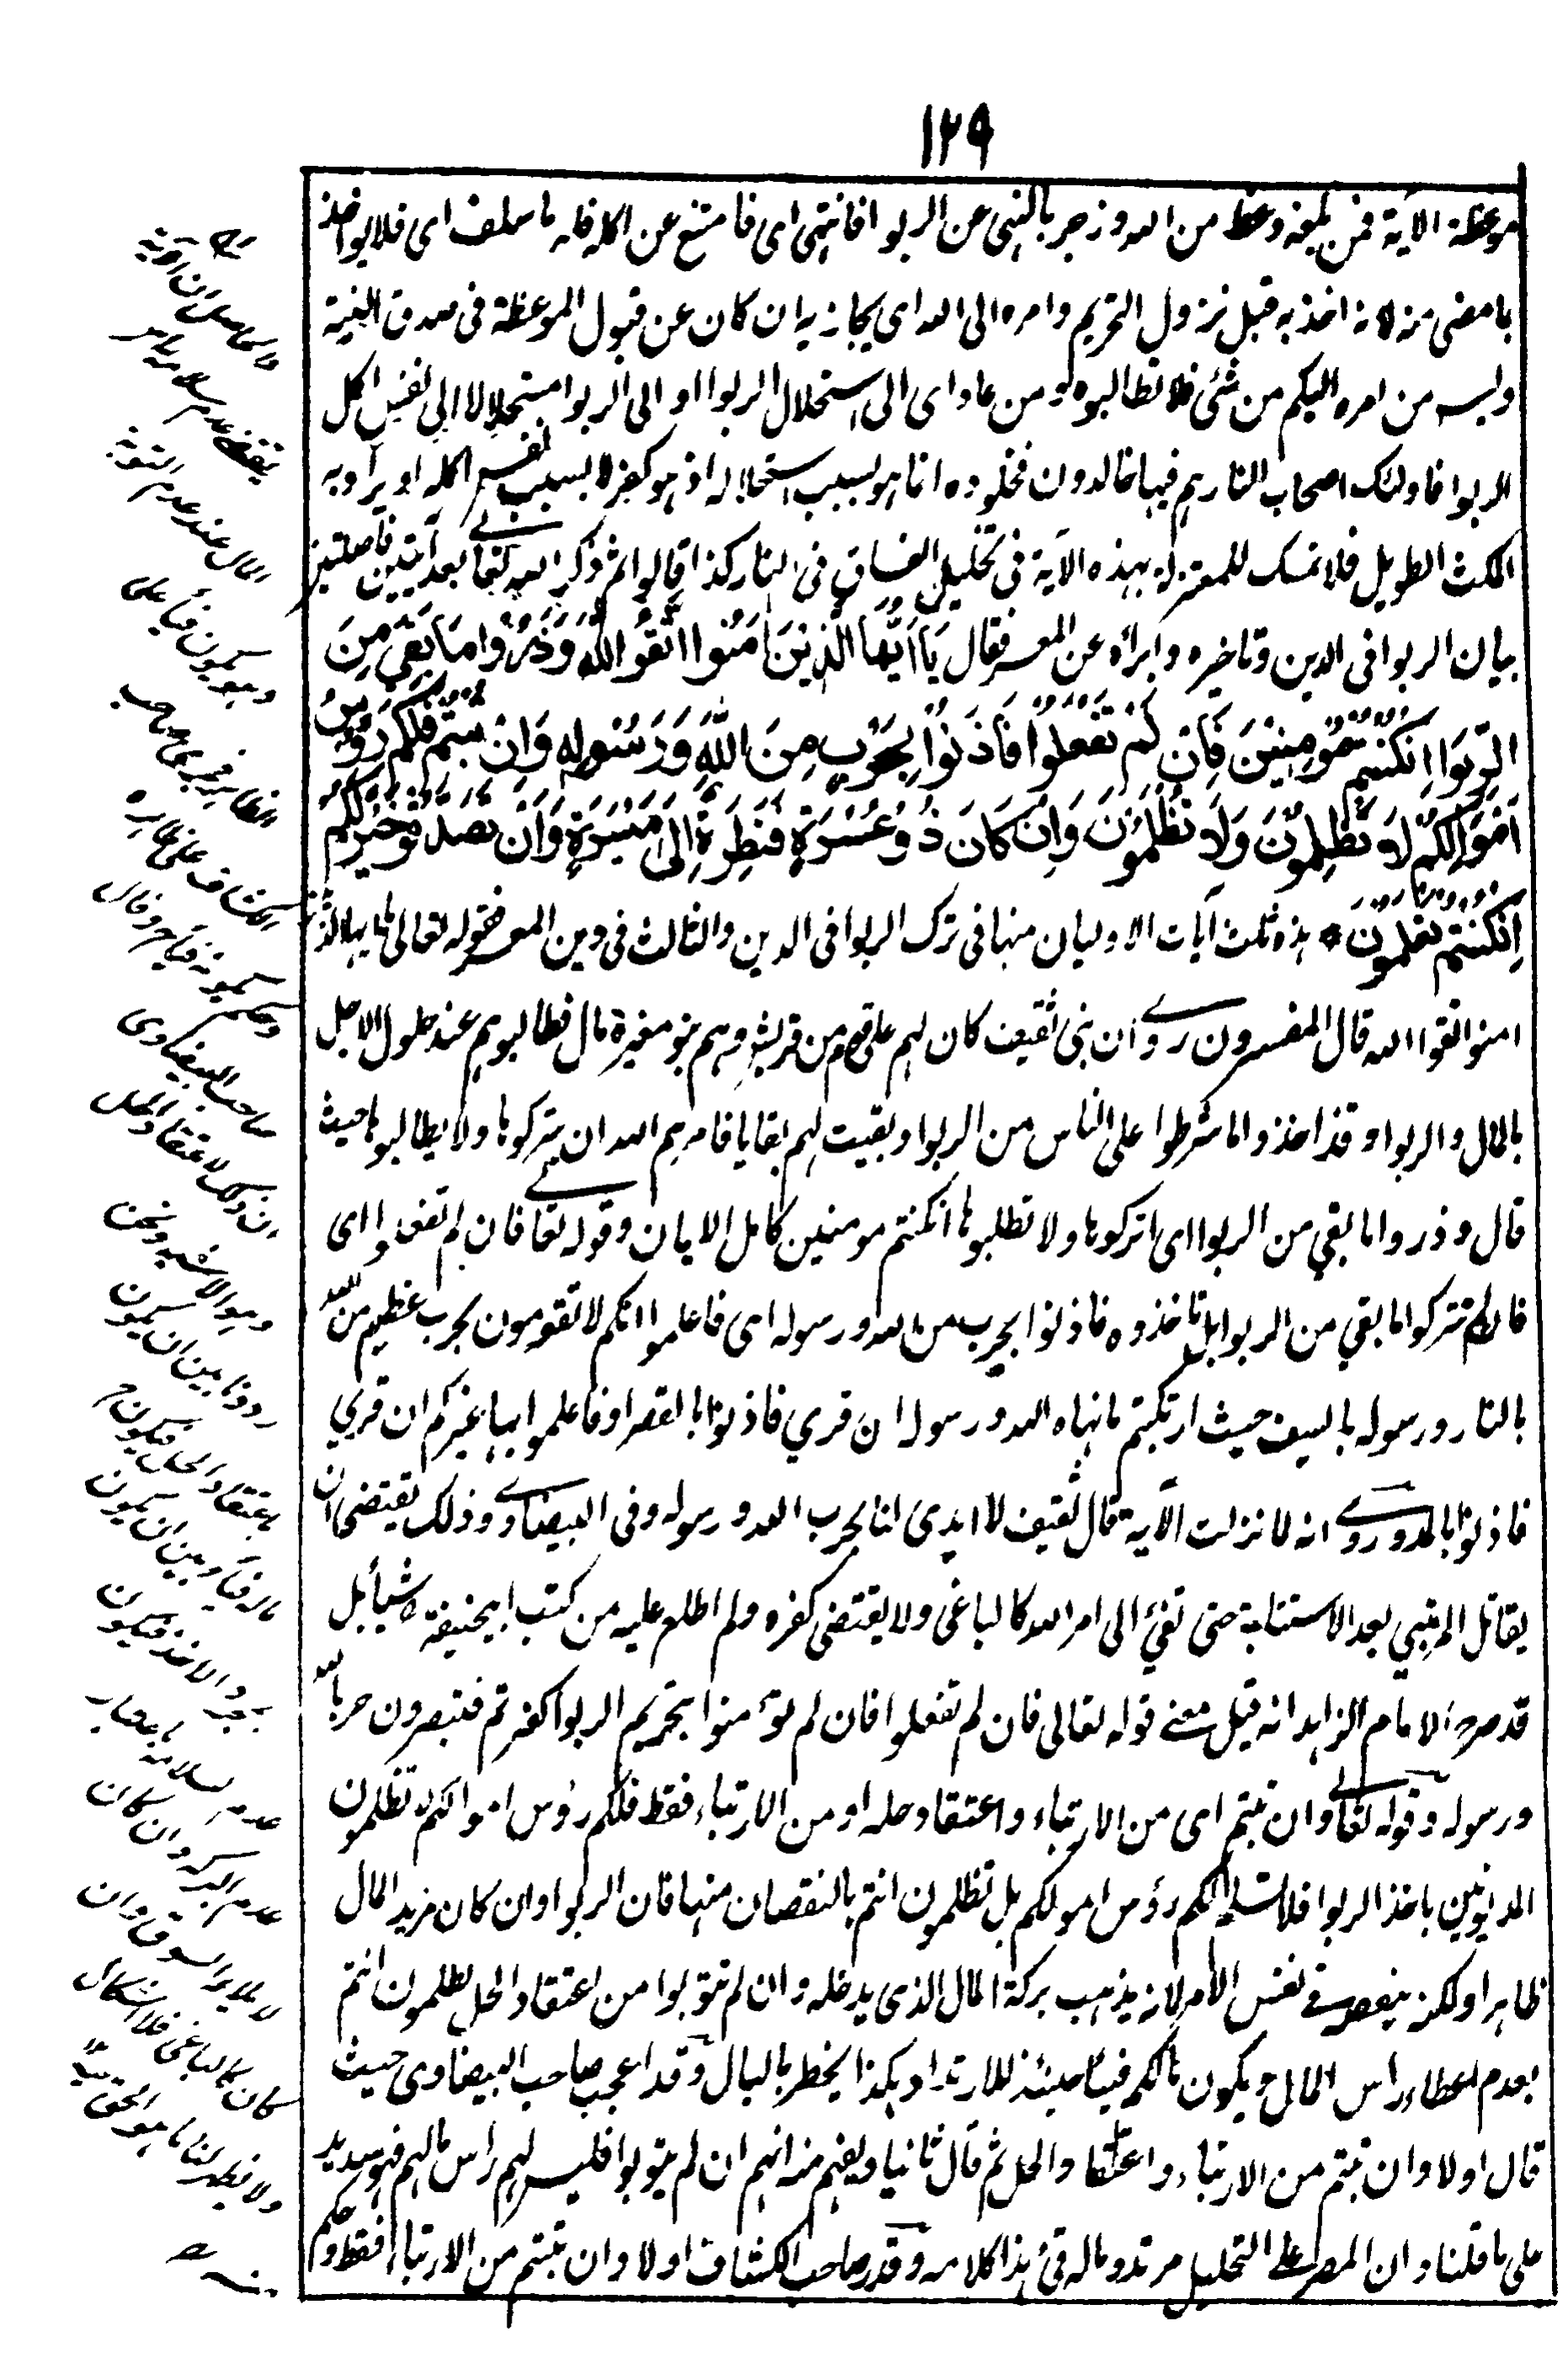 ١٢٩
موعظة الآية فمن بلغه وعظ من الله وزجر بالنهى عن الربوا فانتهى اى فامتنع عن اكله فله ما سلف اى فلا يواخذ
بما مضى منه لانه اخذ به قبل نزول التحريم وامره الى الله اى يجازيه ان كان عن قبول الموعظة فى صدق النية
وليس من امره اليكم من شئ فلا تطالبوه ومن عاد اى الى استحلال الربوا او الى الربوا مستحلا لا الى نفس اكل
الربوا فاولئك اصحاب النار هم فيها خالدون فخلوده انما هو بسبب استحلاله اذ هو كفر لا بسبب نفس اكله او يراد به
المكث الطويل فلا تمسك للمعتزلة بهذه الآية فى تخليد الفساق فى النار كذا قالوا ثم ذكر الله تعالى بعد آيتين فاصلتين
بيان الربوا فى الدين وتاخيره وابراءه عن المعسر فقال يَا اَيُّهَا الَّذِينَ اٰمَنُوا اتَّقُوا اللهَ وَذَرُوْا مَا بَقِيَ مِنَ
الرِّبٰوا اِنْ كُنْتُمْ مُّؤْمِنِيْنَ فَاِنْ لَّمْ تَفْعَلُوْا فَأْذَنُوْا بِحَرْبٍ مِنَ اللهِ وَرَسُوْلِهِ وَاِنْ تُبْتُمْ فَلَكُمْ رُؤُسُ
اَمْوَالِكُمْ لَا تَظْلِمُوْنَ وَلَا تُظْلَمُوْنَ وَاِنْ كَانَ ذُوْ عُسْرَةٍ فَنَظِرَةٌ اِلٰى مَيْسَرَةٍ وَاَنْ تَصَدَّقُوْا خَيْرٌ لَّكُمْ
اِنْ كُنْتُمْ تَعْلَمُوْنَ * هذه ثلث آيات الاوليان منها فى ترك الربوا فى الدين والثالث فى دين المعسر فقوله تعالى يا ايها الذين
امنوا اتقوا الله قال المفسرون روى ان بنى ثقيف كان لهم على قوم من قريش وهم بنو مغيرة مال فطالبوهم عند حلول الاجل
بالمال والربوا وقد اخذوا ما شرطوا على الناس من الربوا وبقيت لهم بقايا فامرهم الله ان يتركوها ولا يطالبوها حيث
قال وذروا ما بقي من الربوا اى اتركوها ولا تطلبوها ان كنتم مومنين كامل الايمان وقوله تعالى فان لم تفعلوا اى
فان لم تتركوا ما بقي من الربوا بل تاخذوه فاذنوا بحرب من الله ورسوله اى فاعلموا انكم لا تقومون بحرب عظيم من الله
بالنار ورسوله بالسيف حيث ارتكبتم ما نهاه الله ورسوله ان قري فاذنوا بالقصر او فاعلموا بها غيركم ان قري
فاذنوا بالمد وروى انه لما نزلت الآية قال ثقيف لا ايدى لنا بحرب الله ورسوله وفى البيضاوى وذلك يقتضى ان
يقاتل المربي بعد الاستتابة حتى تفئ الى امر الله كالباغى ولا يقتضى كفره ولم اطلع عليه من كتب ابيحنيفة شيأ بل
قد صرح الامام الزاهد انه قيل معنى قوله تعالى فان لم تفعلوا فان لم تؤمنوا بتحريم الربوا كفرتم فتبصرون حربا لله
ورسوله وقوله تعالى وان تبتم اى من الارتباء واعتقاد حله او من الارتباء فقط فلكم رؤس اموالكم لا تظلمون
المديونين باخذ الربوا فلا تسلم لكم رؤس امولكم بل تظلمون انتم بالنقصان منها فان الربوا وان كان مزيد المال
ظاهرا ولكنه ينقص فى نفس الامر لانه يذهب بركة المال الذى يدخله وان لم تتوبوا من اعتقاد الحل تظلمون انتم
بعدم اعطاء راس المال ويكون مالكم فيئا حينئذ للارتداد هكذا يخطر بالبال وقد اعجب صاحب البيضاوى حيث
قال اولا وان تبتم من الارتباء واعتقاد الحل ثم قال ثانيا ويفهم منه انهم ان لم يتوبوا فليس لهم راس مالهم فهو سديد
على ما قلنا وان المصر على التحليل مرتد وماله فئ هذا كلامه وقدر صاحب الكشاف اولا وان تبتم من الارتباء فقط وحكم
والحاصل ان الآية
يقتضى عدم سلامة راس
المال عند عدم التوبة
وهو يكون فيأ على
الظاهر فجرى صاحب
الكشاف على ظاهره
وحكم بكونه فيأ وقال
صاحب البيضاوى
ان ذلك لاعتقاد الحل
وهو الاشبه ونحن
رددنا بين ان يكون
باعتقاد الحل فيكون
ماله فيأ وبين ان يكون
بمجرد الاخذ فيكون
عدم سلامته باعتبار
عدم البركة وان كان
كان كالباغى فلا اشكال
ولا يظهر لنا ما هو الحق
منه